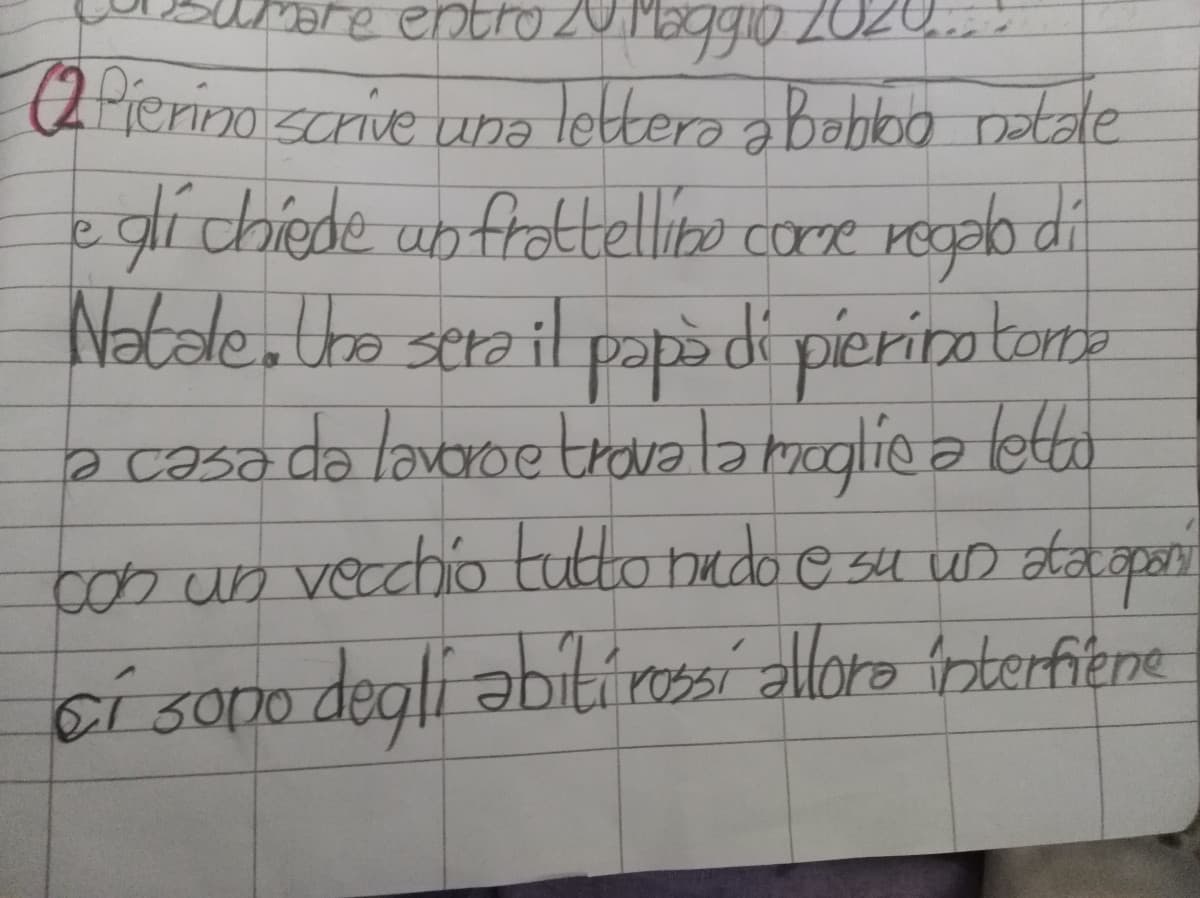 consumare entro 20 Maggio 2020....
2 Pierino scrive una lettera a Babbo natale
e gli chiede un frattellino come regalo di
Natale. Una sera il papà di pierino torna
a casa da lavoro e trova la moglie a letto
con un vecchio tutto nudo e su un atacapani
ci sono degli abiti rossi allora interfiene